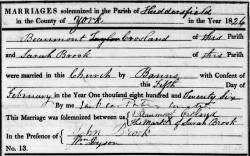 MARRIAGES solemnized in the Parish of Huddersfield
in the County of York in the Year 1826
Beaumont Taylor Crosland of this Parish
and Sarah Brook of this Parish
were married in this Church by Banns with Consent of
this Fifth Day of
February in the Year One thousand eight hundred and Twenty six
By me
This Marriage was solemnized between us Beaumont Crosland
The Mark of Sarah Brook
In the Presence of John Brook
Wm Dyson
No. 13.